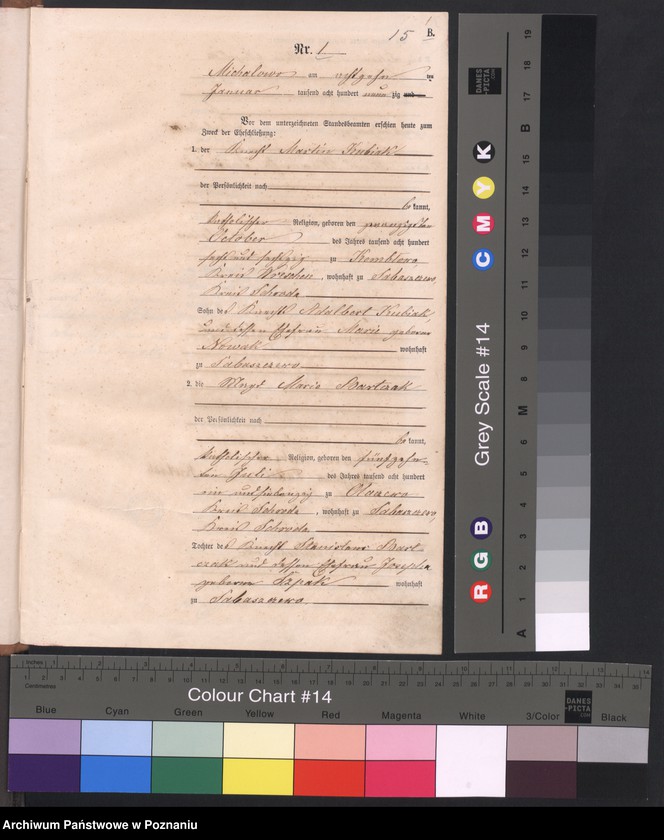 15 B.
Nr. 1
Michalowo am achtzehn ten
Januar tausend acht hundert neunzig und
Vor dem unterzeichneten Standesbeamten erschien heute zum
Zweck der Eheschließung:
1. der Knecht Martin Kubiak
der Persönlichkeit nach
be kannt,
katholischer Religion, geboren den zwanzigsten
October des Jahres tausend acht hundert
sechs und sechszig zu
Kreis Wreschen, wohnhaft zu Sabaszczewo,
Kreis Schroda
Sohn des Knechts Adalbert Kubiak,
und dessen Ehefrau Marie geborne
Nowak wohnhaft
zu Sabaszczewo
2. die Magd Marie Bartczak
der Persönlichkeit nach
be kannt,
katholischer Religion, geboren den fünfzehn-
ten Juli des Jahres tausend acht hundert
ein und siebenzig zu
Kreis Schroda, wohnhaft zu Sabaszczewo,
Kreis Schroda
Tochter des Knecht Stanislaus Bart-
czak und dessen Ehefrau Josepha
geborne Szpak wohnhaft
zu Sabaszczewo
DANES
-PICTA
.COM
Grey Scale #14
R G B C M Y K
A 1 2 3 4 5 6 M 8 9 10 11 12 13 14 15 B 17 18 19
Inches
Centimetres
Colour Chart #14
DANES
-PICTA
.COM
Blue Cyan Green Yellow Red Magenta White 3/Color Black
Archiwum Państwowe w Poznaniu